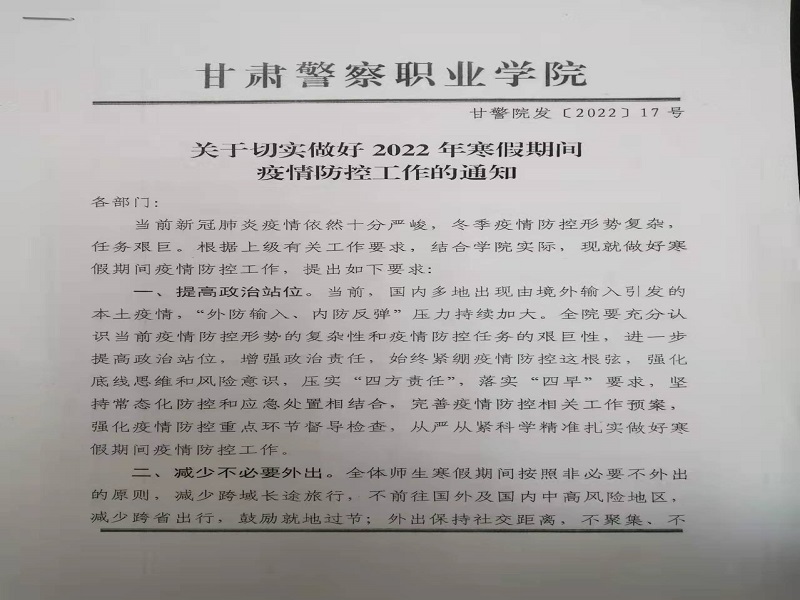 甘肃警察职业学院
甘警院发〔2022〕17号
关于切实做好 2022 年寒假期间
疫情防控工作的通知
各部门：
当前新冠肺炎疫情依然十分严峻，冬季疫情防控形势复杂，
任务艰巨。根据上级有关工作要求，结合学院实际，现就做好寒
假期间疫情防控工作，提出如下要求：
一、提高政治站位。当前，国内多地出现由境外输入引发的
本土疫情，“外防输入、内防反弹”压力持续加大。全院要充分认
识当前疫情防控形势的复杂性和疫情防控任务的艰巨性，进一步
提高政治站位，增强政治责任，始终紧绷疫情防控这根弦，强化
底线思维和风险意识，压实“四方责任”，落实“四早”要求，坚
持常态化防控和应急处置相结合，完善疫情防控相关工作预案，
强化疫情防控重点环节督导检查，从严从紧科学精准扎实做好寒
假期间疫情防控工作。
二、减少不必要外出。全体师生寒假期间按照非必要不外出
的原则，减少跨域长途旅行，不前往国外及国内中高风险地区，
减少跨省出行，鼓励就地过节；外出保持社交距离，不聚集、不